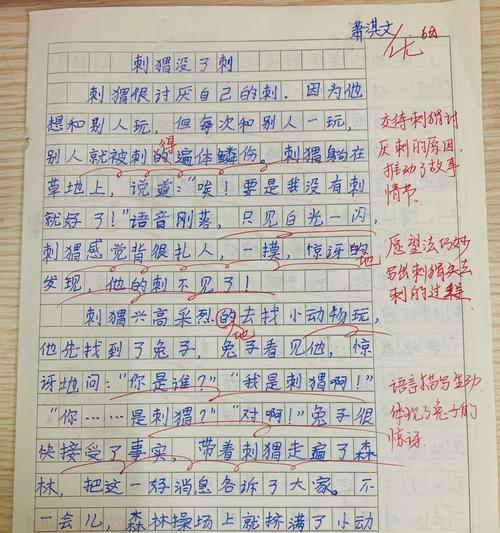 萧淇文
优
刺猬没了刺
刺猬很讨厌自己的刺.因为他
想和别人玩，但每次和别人一玩，
得
别人就被刺的遍体鳞伤。刺猬躺在
草地上，说道：“唉！要是我没有刺
就好了！”语音刚落，只见白光一闪，
刺猬感觉背很扎人，一摸，惊讶的
地
发现，他的刺不见了！
刺猬兴高采烈的去找小动物玩，
地
他先找到了兔子，兔子看见他，惊
讶地问：“你是谁？”“我是刺猬啊！”
“你……是刺猬？”“对啊！”兔子很
快接受了事实，带着刺猬走遍了森
林，把这一好消息各诉了大家。不
一会儿，森林操场上就挤满了小动
交待刺猬讨
厌刺的原因，
推动了故事
情节.
愿望法巧妙
写出刺猬失去
刺的过程
语言描写生动
体现了兔子的
惊讶.